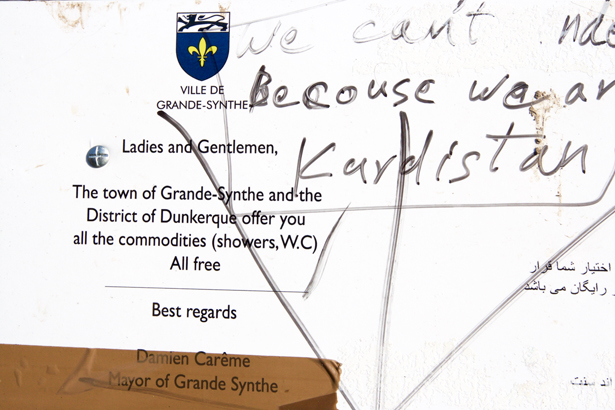 we can't
VILLE DE
GRANDE-SYNTHE
Becouse we ar
Kurdistan
Ladies and Gentlemen,
The town of Grande-Synthe and the
District of Dunkerque offer you
all the commodities (showers, W.C)
All free
Best regards
Damien Carême
Mayor of Grande Synthe
اختیار شما قرار
رایگان می باشد
اند سنت